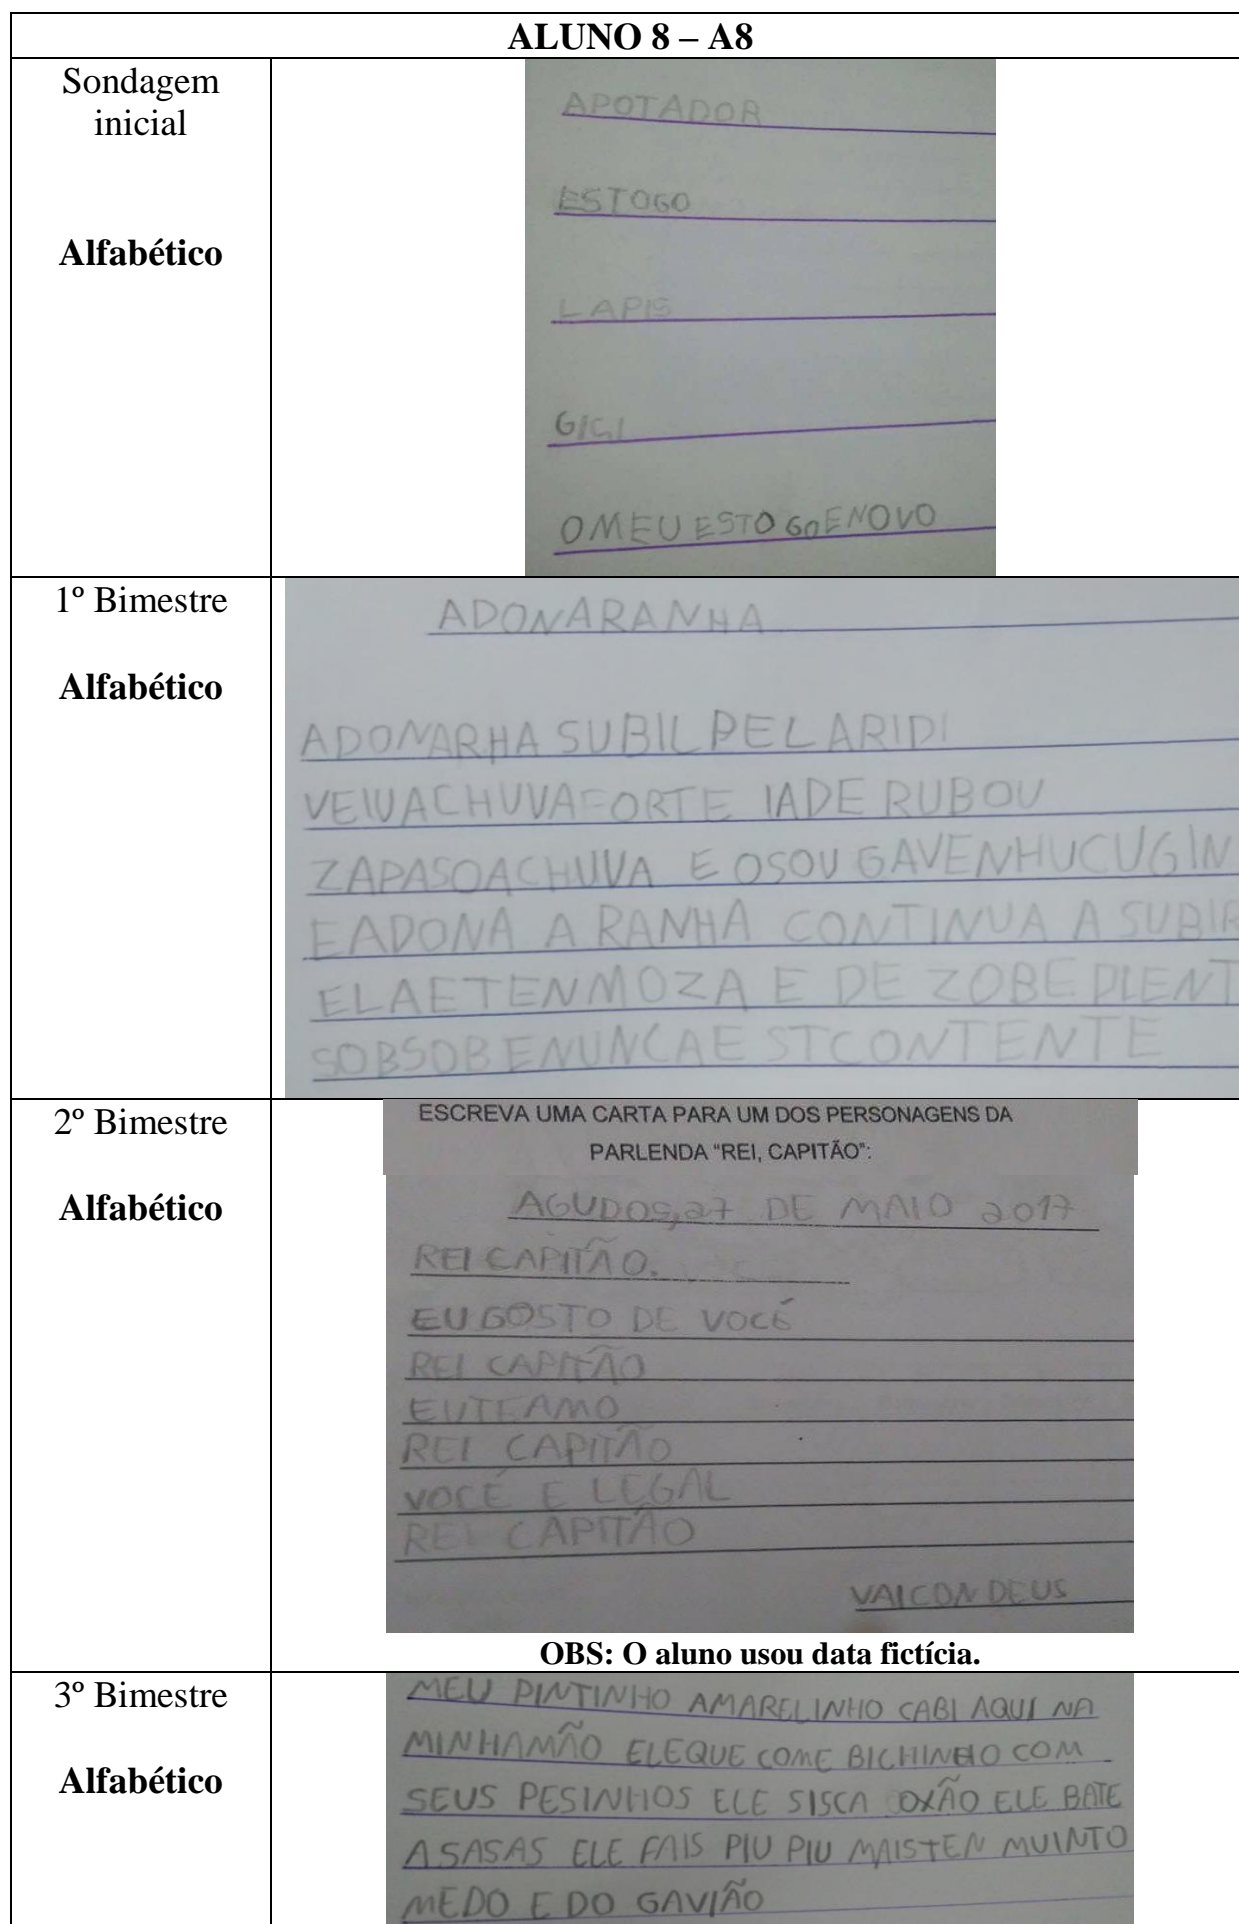 ALUNO 8 – A8
Sondagem
inicial
Alfabético
APOTADOR
ESTOGO
LAPIS
GIGI
OMEU ESTOGOENOVO
1º Bimestre
Alfabético
ADONARANHA
ADONARHA SUBIL PELARIDI
VEIUACHUVAFORTE IADERUBOU
ZAPASOACHUVA E OSOU GAVENHUCUGIN
EADONA A RANHA CONTINUA A SUBIR
ELAETENMOZA E DE ZOBEDIENT
SOBSOBENUNCAE STCONTENTE
2º Bimestre
Alfabético
ESCREVA UMA CARTA PARA UM DOS PERSONAGENS DA
PARLENDA “REI, CAPITÃO”:
AGUDOS,27 DE MAIO 2017
REI CAPITÃO.
EU GOSTO DE VOCÉ
REI CAPITÃO
EUTEAMO
REI CAPITÃO
VOCÉ E LEGAL
REI CAPITÃO
VAICON DEUS
OBS: O aluno usou data fictícia.
3º Bimestre
Alfabético
MEU PINTINHO AMARELINHO CABI AQUI NA
MINHAMÃO ELEQUE COME BICHINHO COM
SEUS PESINHOS ELE SISCA OXÃO ELE BATE
ASASAS ELE FAIS PIU PIU MAISTEN MUINTO
MEDO E DO GAVIÃO